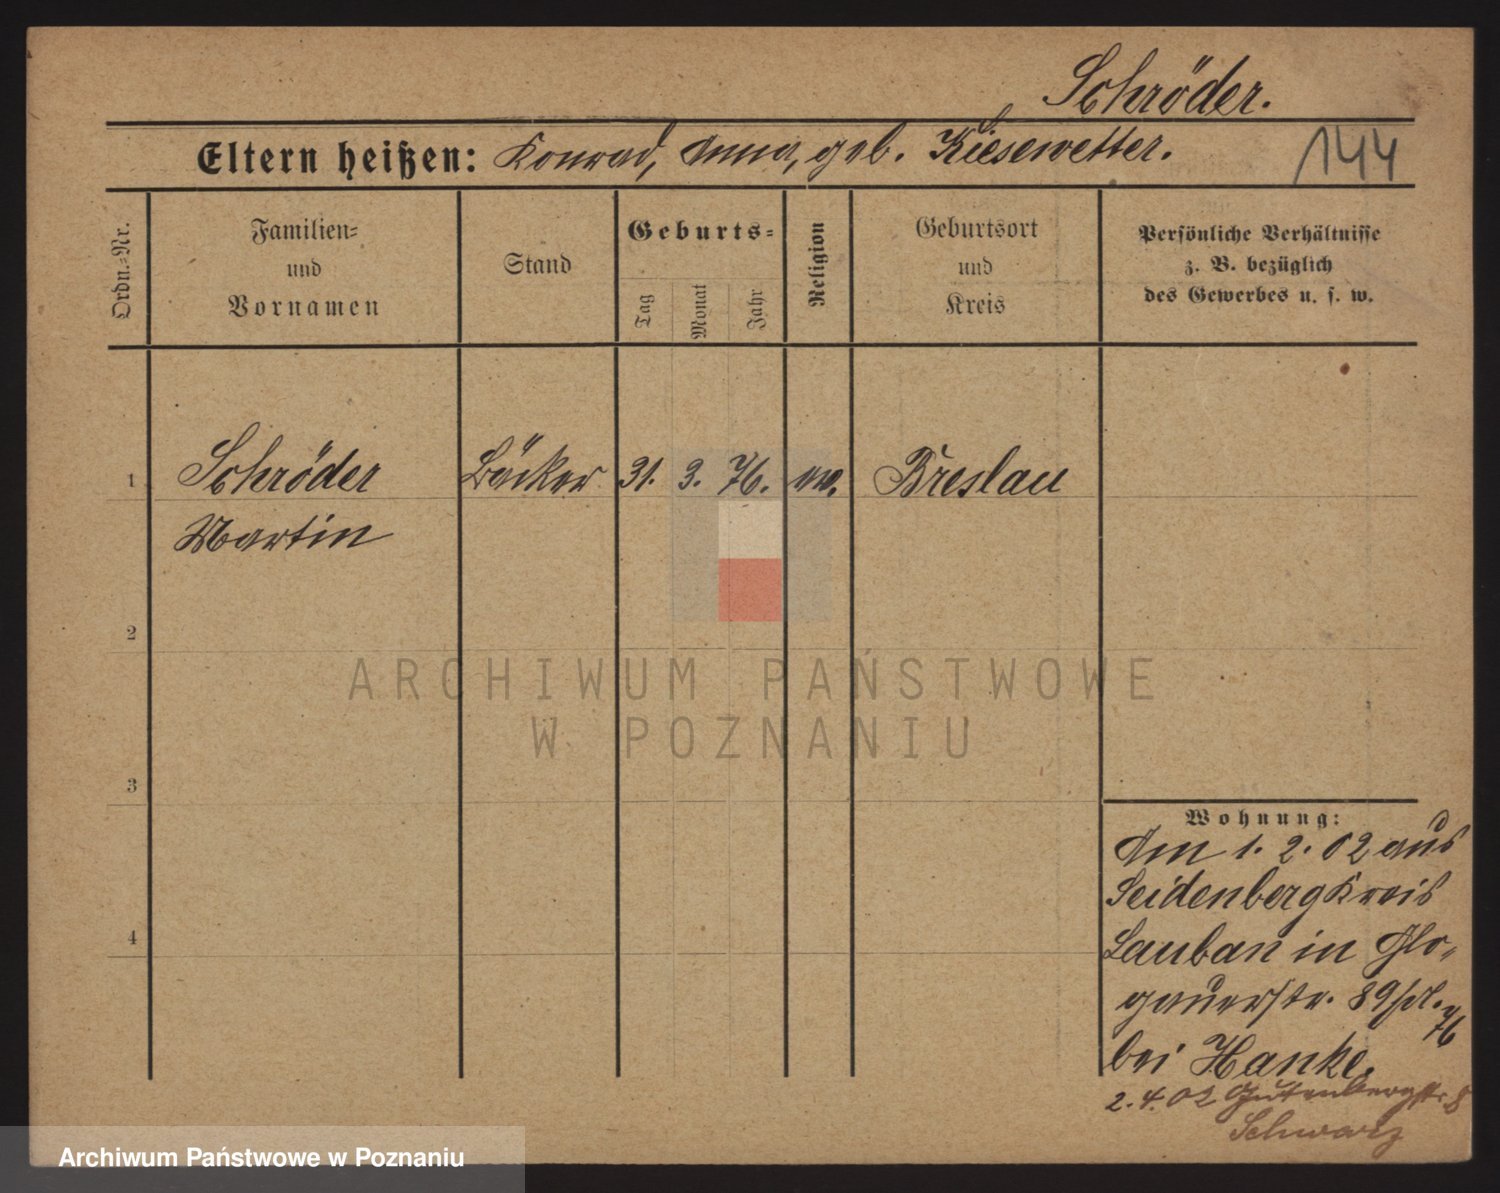 Schröder.
Eltern heißen: Konrad, Anna, geb. Kiesewetter.
144
Ordn.-Nr.
Familien-
und
Vornamen
Stand
Geburts-
Tag
Monat
Jahr
Religion
Geburtsort
und
Kreis
Persönliche Verhältnisse
z. B. bezüglich
des Gewerbes u. s. w.
1 Schröder Bäcker 31. 3. 76. ev. Breslau
Martin
2
ARCHIWUM PAŃSTWOWE
W POZNANIU
3
Wohnung:
Am 1. 2. 02 aus
Seidenberg Kreis
4
Lauban in Glo-
gauerstr. 89
bei Hanke.
2. 4. 02 Gutenbergstr. 8
Schwarz
Archiwum Państwowe w Poznaniu